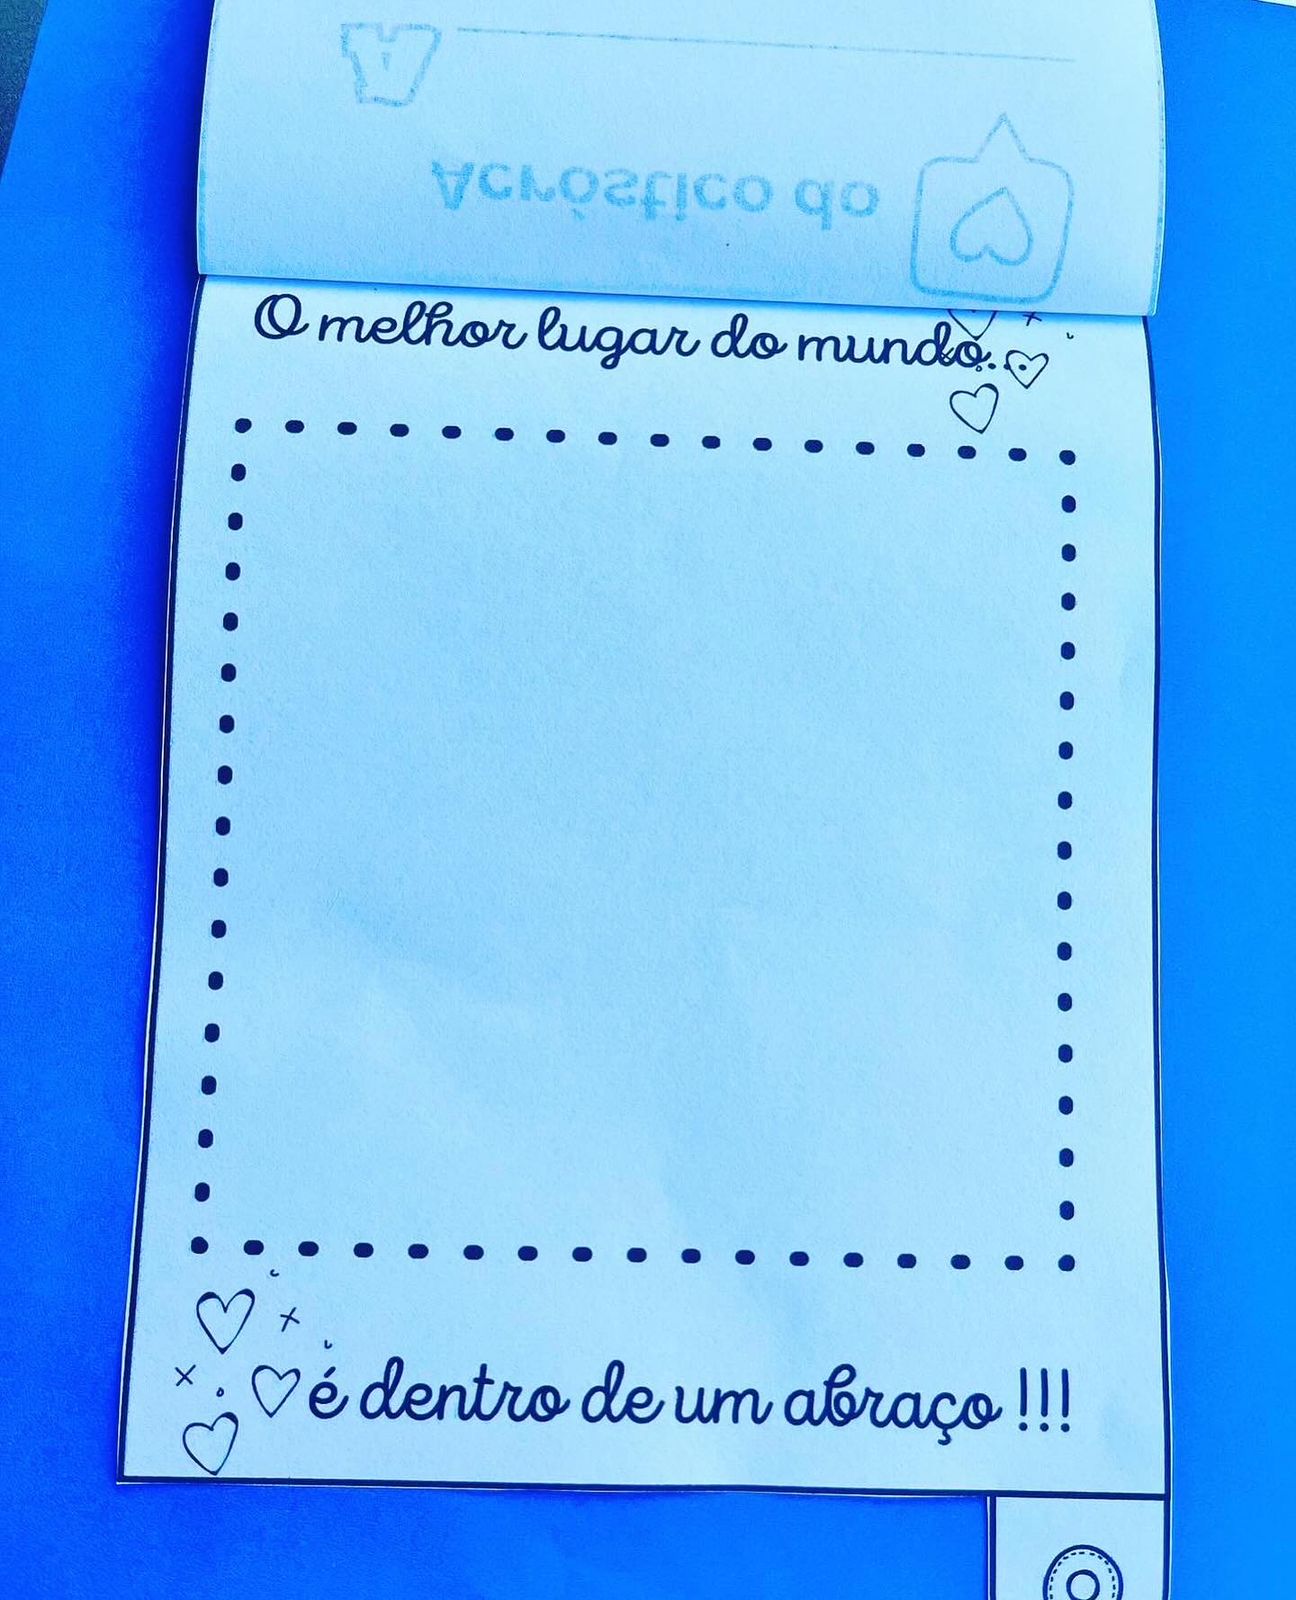 A
Acróstico do
O melhor lugar do mundo...
é dentro de um abraço !!!